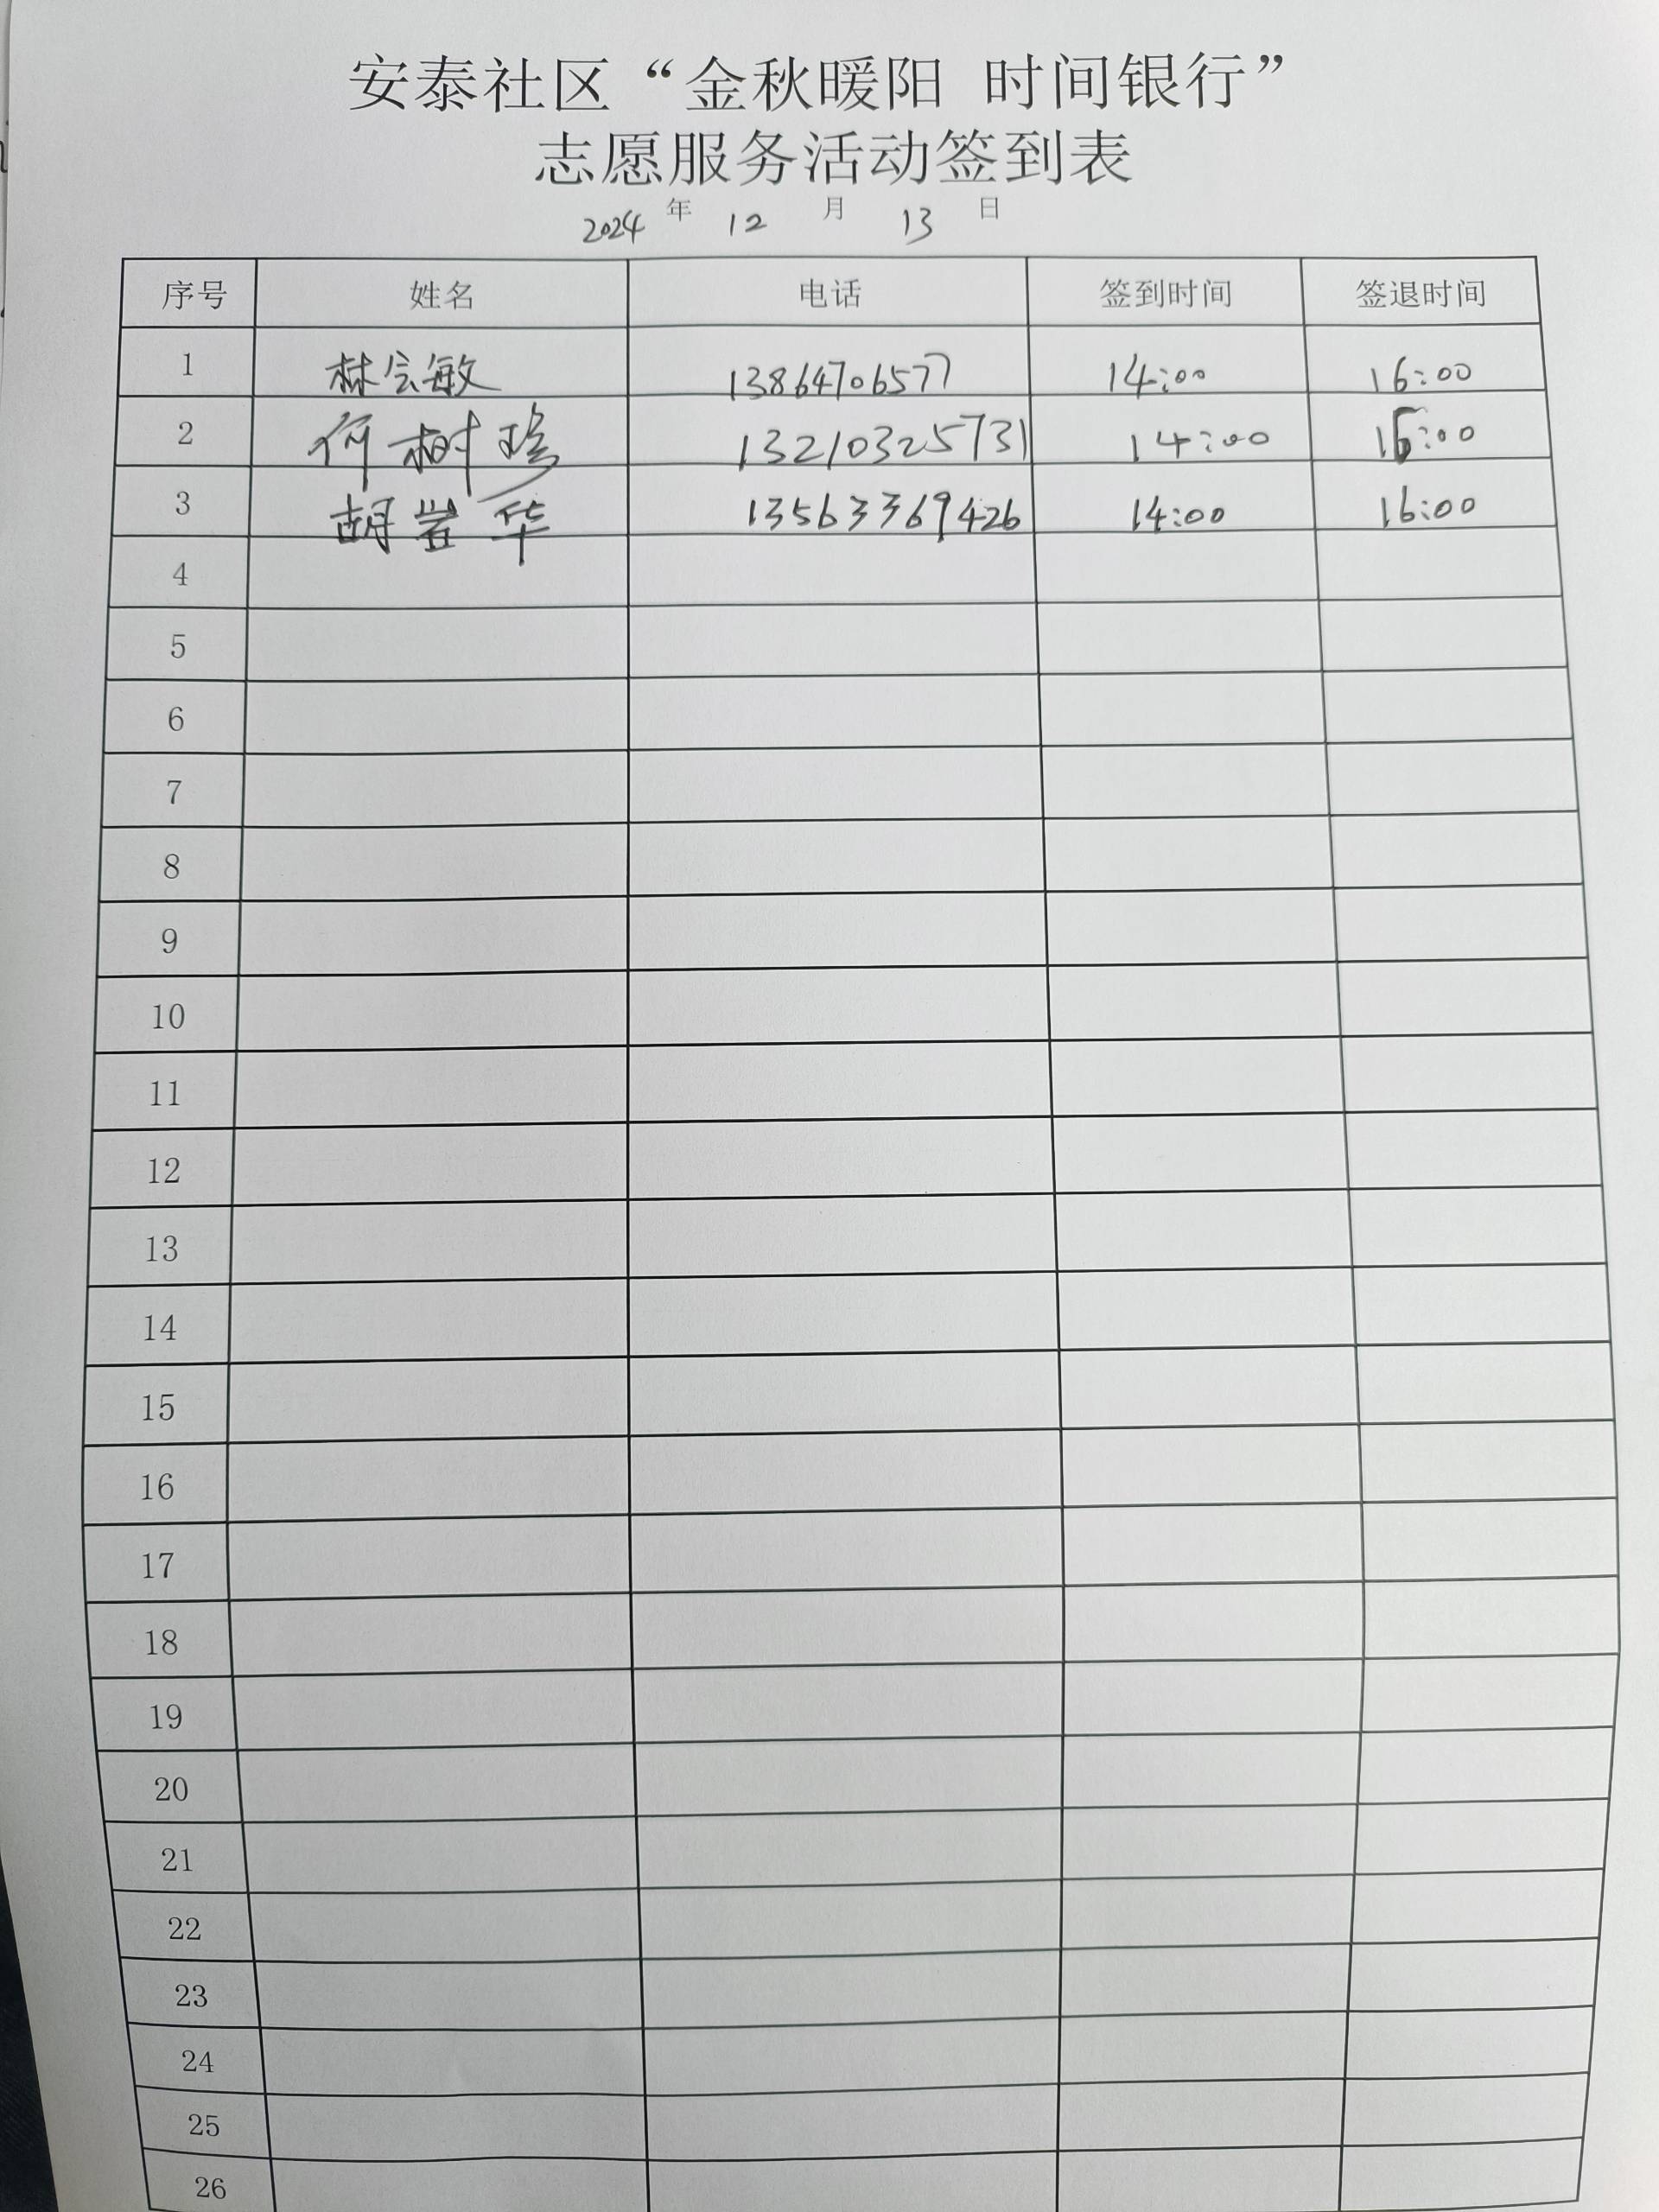 安泰社区“金秋暖阳 时间银行”
志愿服务活动签到表
2024 年 12 月 13 日
序号 姓名 电话 签到时间 签退时间
1 林会敏 13864706577 14:00 16:00
2 何树珍 13210325731 14:00 16:00
3 胡岩华 13563369426 14:00 16:00
4
5
6
7
8
9
10
11
12
13
14
15
16
17
18
19
20
21
22
23
24
25
26